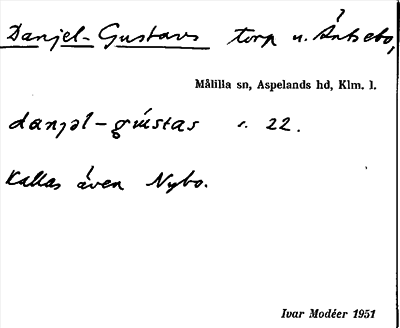 Danjel-Gustavs torp u. Äntsebo,
Målilla sn, Aspelands hd, Klm. l.
danjəl-gústas s. 22.
Kallas även Nybo.
Ivar Modéer 1951